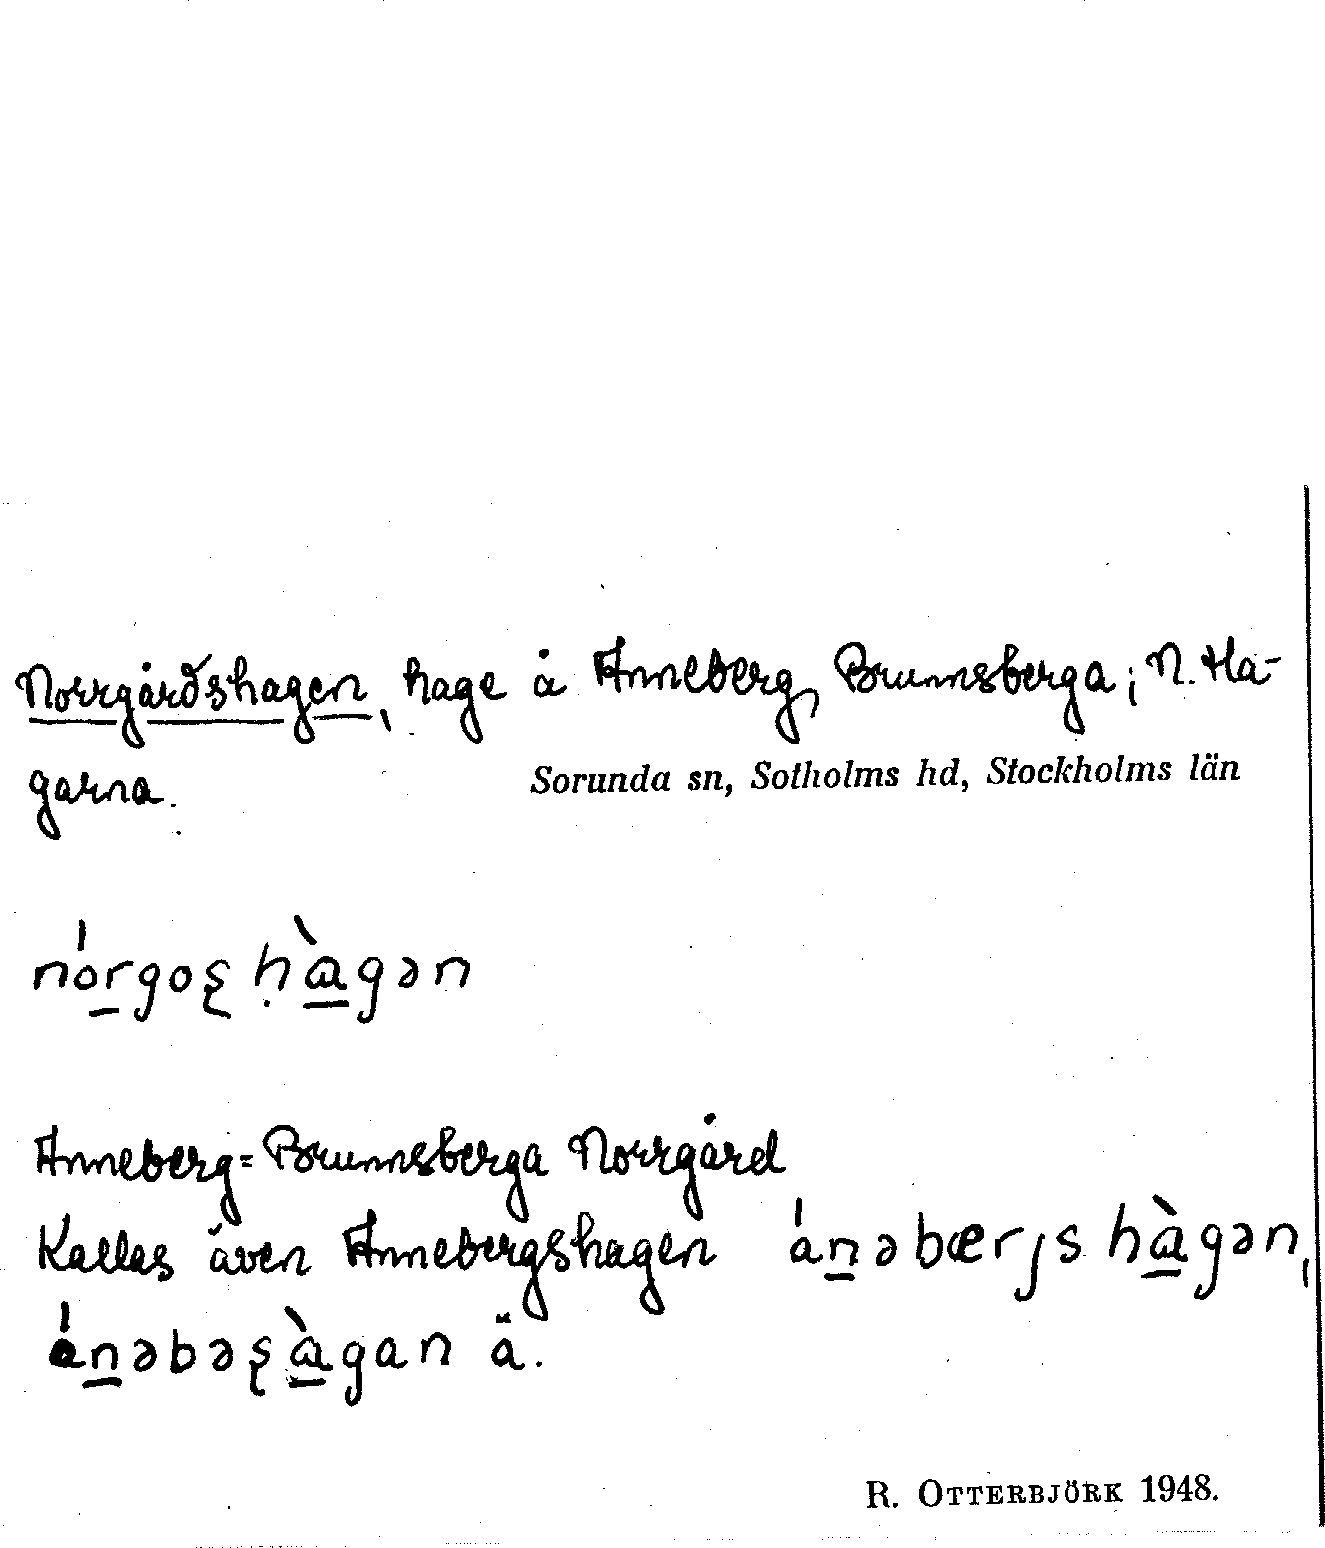 Norrgårdshagen, hage å Anneberg, Brunnsberga; N. Ha-
garna.
Sorunda sn, Sotholms hd, Stockholms län
nórgoʂ ḥɑ̀gən
Anneberg = Brunnsberga Norrgård
Kallas även Annebergshagen ánəbærȷs hɑ̀gən,
ánəbəʂɑ̀gan ä.
R. OTTERBJÖRK 1948.